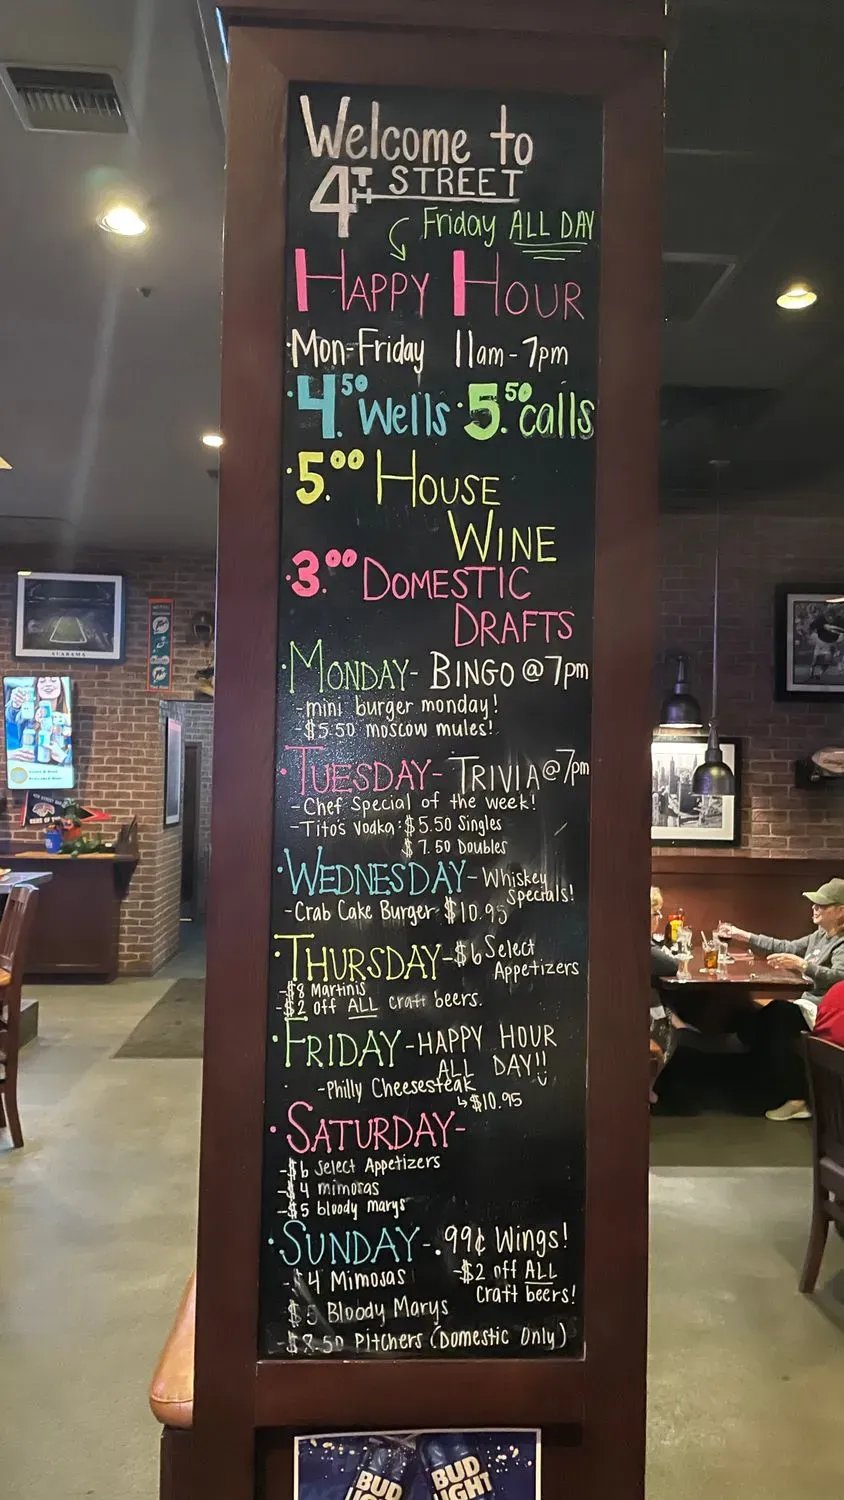 Welcome to
4TH STREET
Friday ALL DAY
HAPPY HOUR
·Mon-Friday 11am-7pm
·4.50 Wells ·5.50 calls
·5.00 HOUSE
WINE
·3.00 DOMESTIC
DRAFTS
·MONDAY- BINGO @ 7pm
-mini burger monday!
-$5.50 moscow mules!
·TUESDAY- TRIVIA @ 7pm
-Chef Special of the week!
-Tito's Vodka: $5.50 Singles
$7.50 Doubles
·WEDNESDAY- Whiskey
Specials!
-Crab Cake Burger $10.95
·THURSDAY- $6 Select
Appetizers
-$8 Martinis
-$2 off ALL craft beers.
·FRIDAY- HAPPY HOUR
ALL DAY!!
-Philly Cheesesteak
↳$10.95
·SATURDAY-
-$6 Select Appetizers
-$4 mimosas
-$5 bloody marys
·SUNDAY- .99¢ Wings!
-$4 Mimosas
-$2 off ALL
craft beers!
-$5 Bloody Marys
-$8.50 Pitchers (Domestic Only)
ALABAMA
BUD
BUD
LIGHT